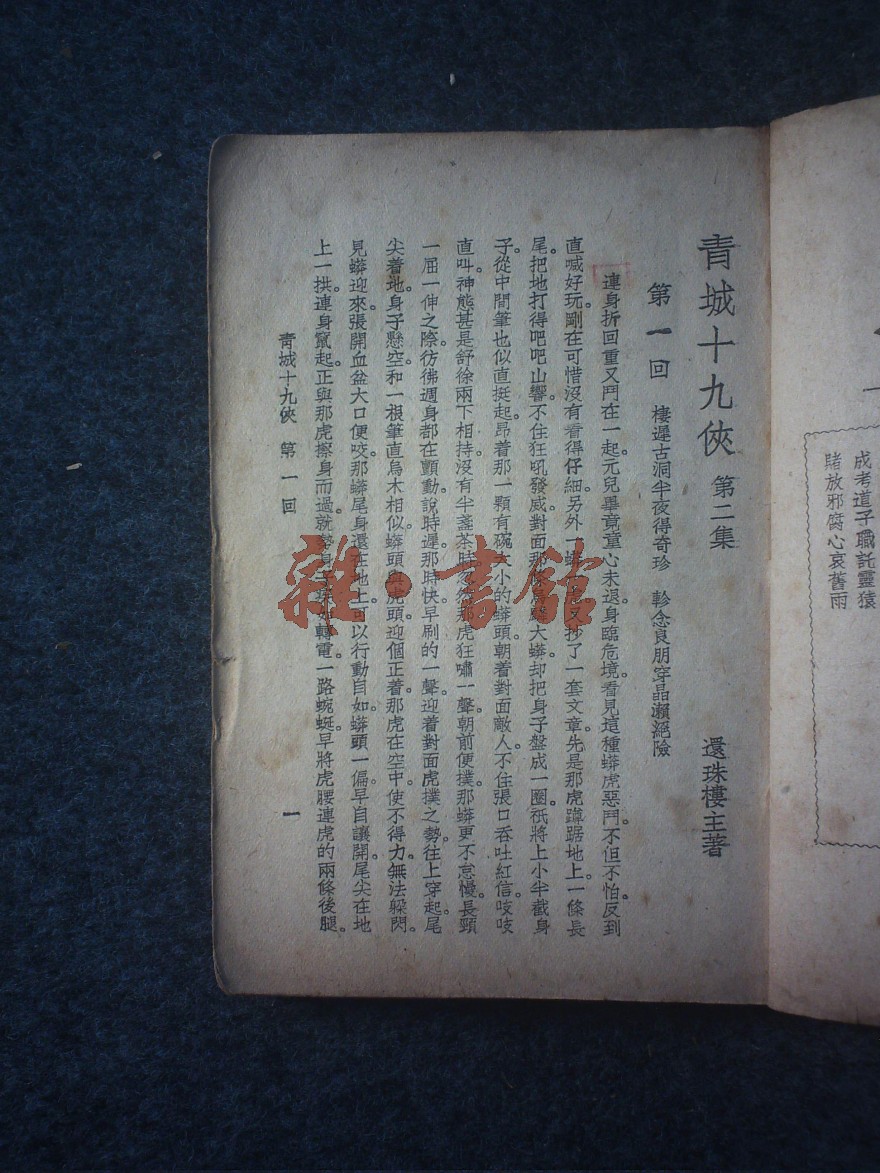 成考道子職託靈猿
賭放邪腐心哀舊雨
青城十九俠 第二集
還珠樓主著
第一回 棲遲古洞半夜得奇珍 軫念良朋穿晶瀨絕險
連身折回重又鬥在一起元兒畢竟童心未退身臨危境看見這種蟒虎惡鬥不但不怕反到
直喊好玩剛在可惜沒有看得仔細另外一蟒一虎又抄了一套文章先是那虎蹲踞地上一條長
尾把地打得吧吧山響不住狂吼發威對面那條烏鱗大蟒却把身子盤成一圈祇將上小半截身
子從中間筆也似直挺起昂着那一顆有碗大小的蟒頭朝着對面敵人不住張口吞吐紅信吱吱
直叫神態甚是舒徐兩下相持沒有半盞茶時忽然那虎狂嘯一聲朝前便撲那蟒更不怠慢長頸
一屈一伸之際彷彿週身都在顫動說時遲那時快早刷的一聲迎着對面虎撲之勢往上穿起尾
尖着地身子懸空和一根筆直烏木相似蟒頭與虎頭迎個正着那虎在空中使不得力無法躲閃
見蟒迎來張開血盆大口便咬那蟒尾身還在地上可以行動自如蟒頭一偏早自讓開尾尖在地
上一拱連身竄起正與那虎擦身而過就勢身子疾如轉電一路蜿蜒早將虎腰連虎的兩條後腿
青城十九俠 第一回
一
雜·書館